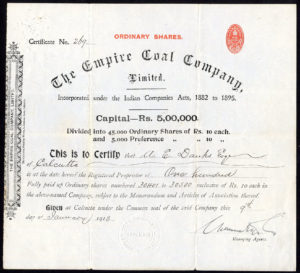 ORDINARY SHARES.
Certificate No. 269
The Empire Coal Company,
Limited.
Incorporated under the Indian Companies Acts, 1882 to 1895.
Capital—Rs. 5,00,000.
Divided into 45,000 Ordinary Shares of Rs. 10 each.
and 5,000 Preference " " " 10 "
This is to Certify that E. Danks Esq
of Calcutta
is at the date hereof the Registered Proprietor of One hundred
Fully paid up Ordinary shares numbered to 30500 inclusive of Rs. 10 each in
the above-named Company, subject to the Memorandum and Articles of Association thereof.
Given at Calcutta under the Common seal of the said Company this 9th
day of January 1913.
Managing Agents.